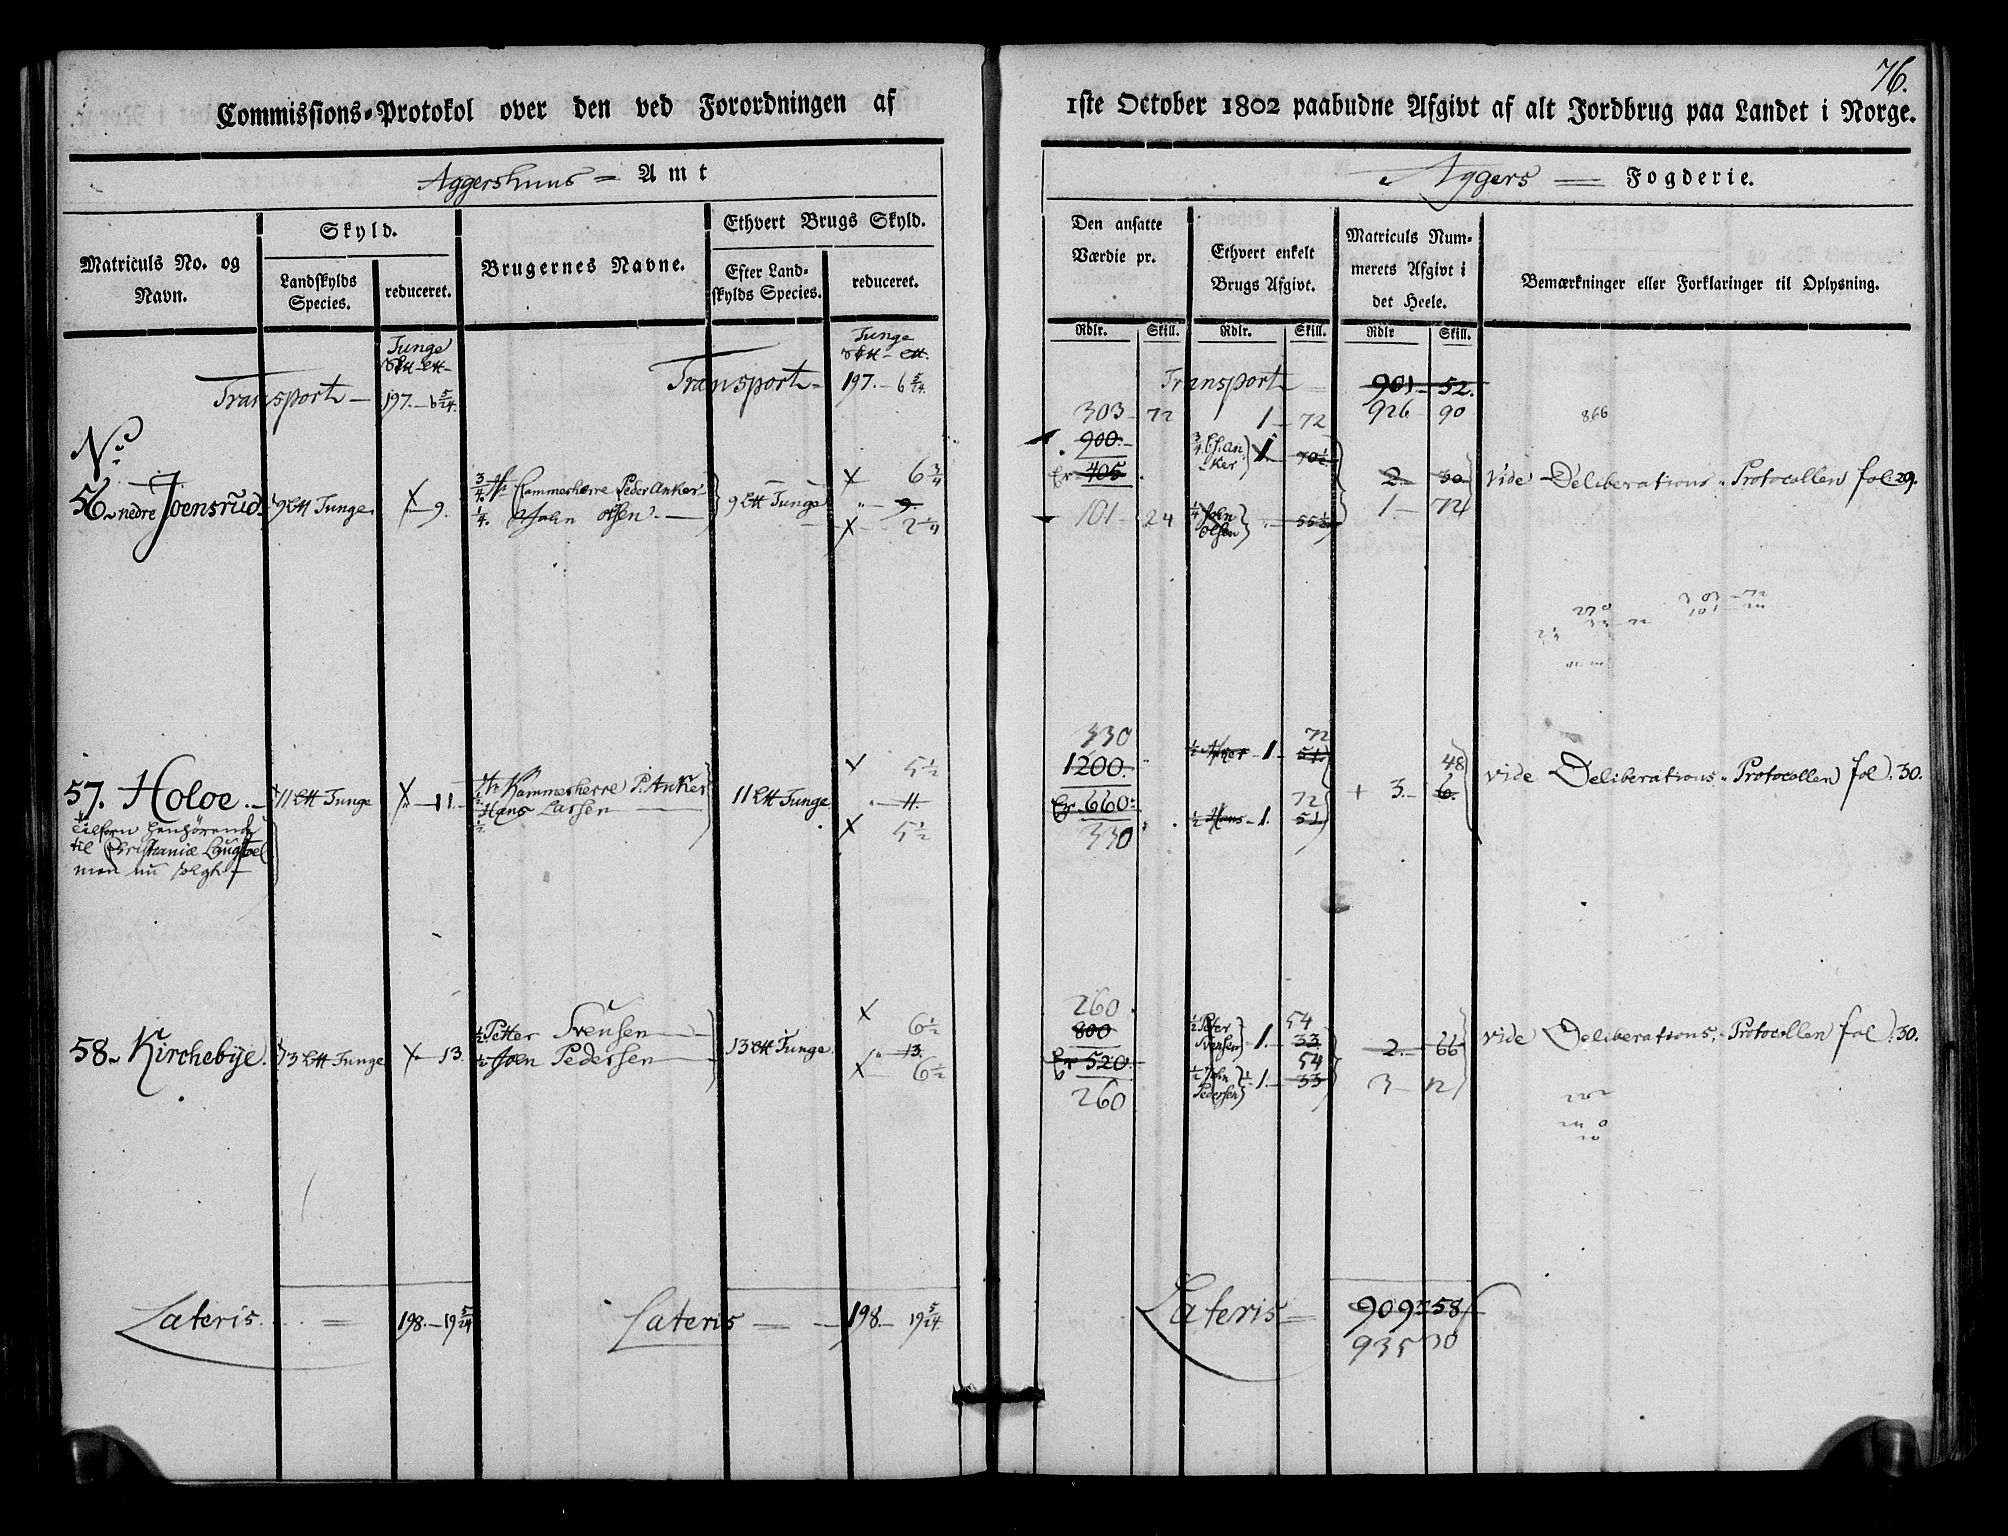 76.
Commissions-Protokol over den ved Forordningen af 1ste October 1802 paabudne Afgivt af alt Jordbrug paa Landet i Norge.
Aggershuus Amt
Aggers Fogderie.
Matriculs No. og Navn.
Skyld.
Landskylds Species.
reduceret.
Brugernes Navne.
Ethvert Brugs Skyld.
Efter Landskylds Species.
reduceret.
Den ansatte Værdie pr.
Ethvert enkelt Brugs Afgivt.
Matriculs Nummerets Afgivt i det Heele.
Bemærkninger eller Forklaringer til Oplysning.
Rdlr. Skill. Rdlr. Skill. Rdlr Skill.
Tunge Tunge
Transport 197. 6 5/24. Transport 197. 6 5/24. Transport 901 52.
926 90
866
No
303 72 1 72
900.
56. nedre Joensrud 9 Tunge 9. 3/4 Cammerherre Peder Anker 9 Tunge 6 3/4
405 3/4 Anker 1 70 1/2 2. 30 vide Deliberations Protocollen fol. 29.
1/4 John Olsen 9 2 1/4
101 24 1/4 John Olsen 55 1/2 1 72
303 72
101 24
270
330 72
57. Holoe. 11 Tunge 11. 1/2 Kammerherre P. Anker 11 Tunge 5 1/2
1200. 1/2 1. 51 48 vide Deliberations Protocollen fol. 30.
1/2 Hans Larsen 11. 5 1/2
660 1/2 Hans 1. 51 72 3. 6.
330
tilforn henhörende
til Christianiæ
men nu solgt
260
58. Kirchebÿe. 13 Tunge 13. 1/2 Petter Svensen 13 Tunge 6 1/2
800 1/2 Peter Svensen 1. 33 54 2. 66 vide Deliberations Protocollen fol. 30.
1/2 Joen Pedersen 13. 6 1/2
520 1/2 John Pedersen 1 33 54 3 12
260
Lateris 198. 19 5/24 Lateris 198. 19 5/24. Lateris 909 58
935 30